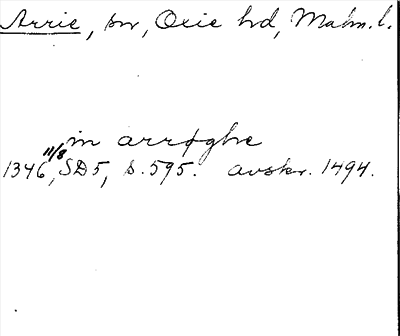 Arrie, sn, Oxie hd, Malm. l.
in arrøghe
1346 11/8, SD5, s. 595. avskr. 1494.